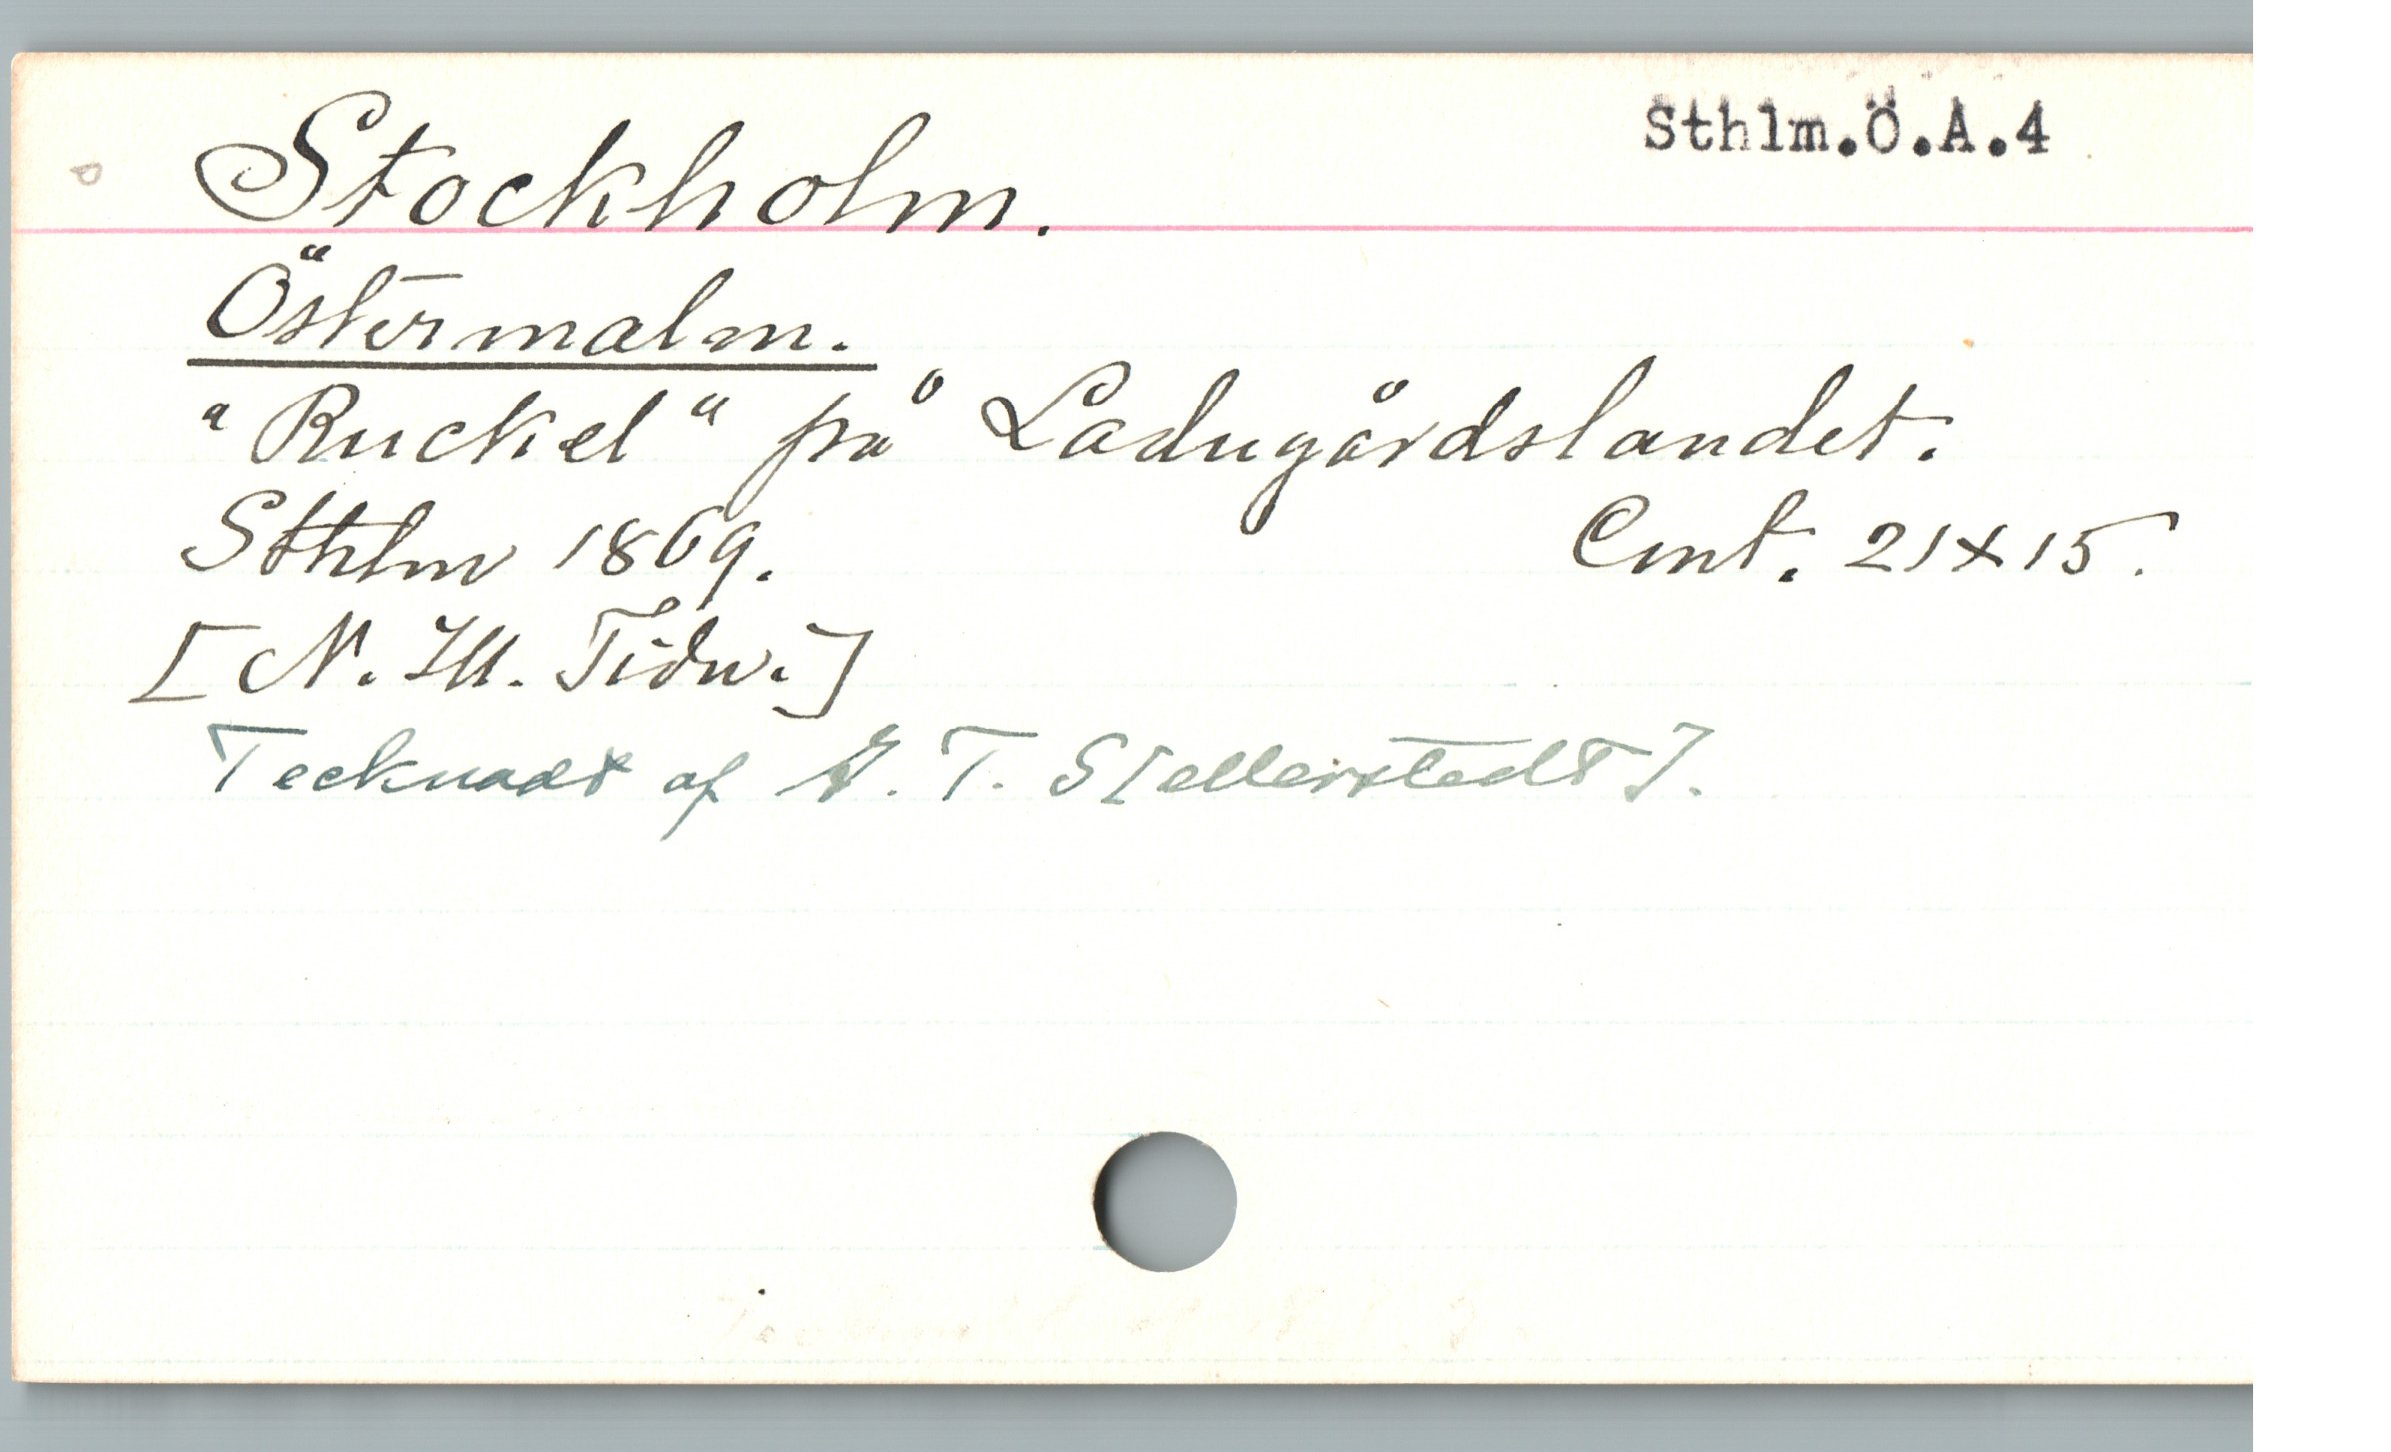 Sthlm.Ö.A.4
Stockholm.
Östermalm.
"Ruckel" på Ladugårdslandet.
Sthlm 1869. Cmt. 21x15.
[N. Ill. Tidn.]
Tecknadt af G. T. S[ellerstedt].